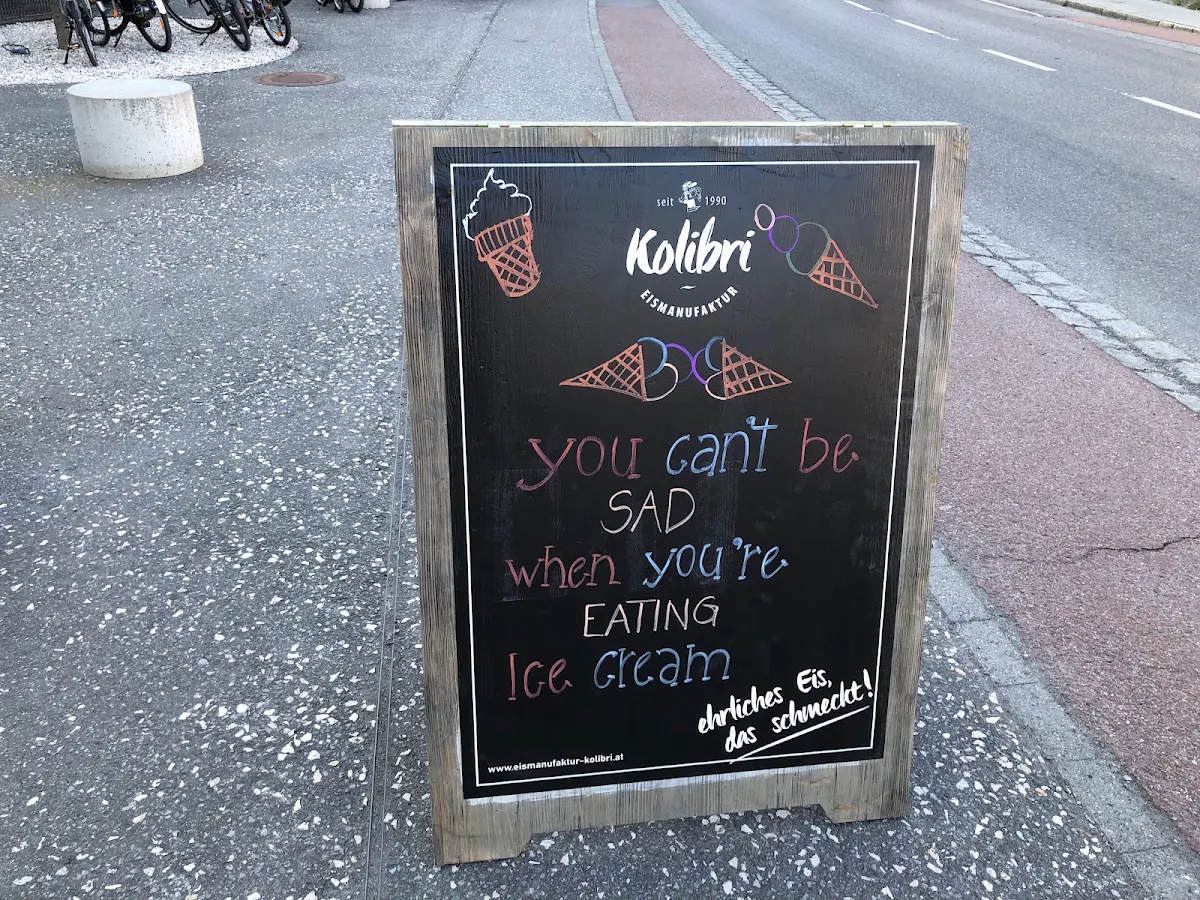 seit 1990
Kolibri
EISMANUFAKTUR
you can't be
SAD
when you're
EATING
Ice cream
ehrliches Eis,
das schmeckt!
www.eismanufaktur-kolibri.at